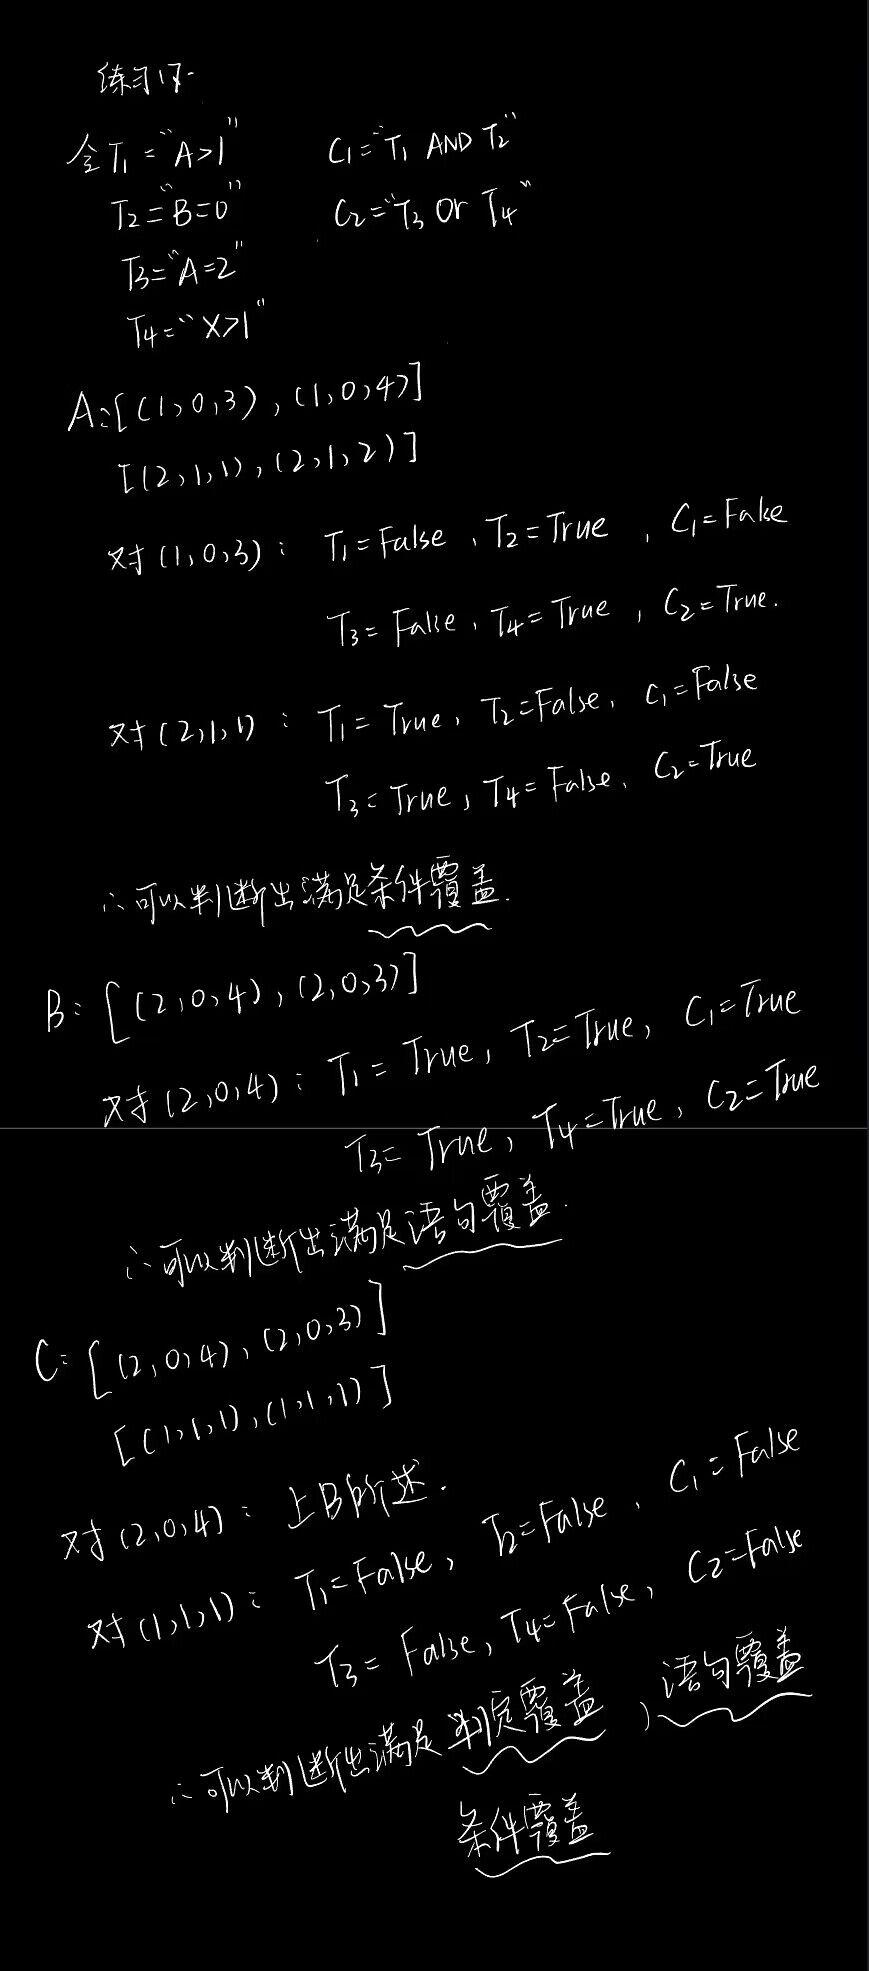 练习17.
令T1="A>1" C1="T1 AND T2"
T2="B=0" C2="T3 or T4"
T3="A=2"
T4="X>1"
A:[(1,0,3),(1,0,4)]
[(2,1,1),(2,1,2)]
对(1,0,3): T1=False,T2=True,C1=False
T3=False,T4=True,C2=True.
对(2,1,1): T1=True,T2=False,C1=False
T3=True,T4=False,C2=True
∴可以判断出满足条件覆盖.
B:[(2,0,4),(2,0,3)]
对(2,0,4):T1=True,T2=True,C1=True
T3=True,T4=True,C2=True
∴可以判断出满足语句覆盖.
C:[(2,0,4),(2,0,3)]
[(1,1,1),(1,1,1)]
对(2,0,4):上B所述.
对(1,1,1):T1=False,T2=False,C1=False
T3=False,T4=False,C2=False
∴可以判断出满足判定覆盖,语句覆盖
条件覆盖